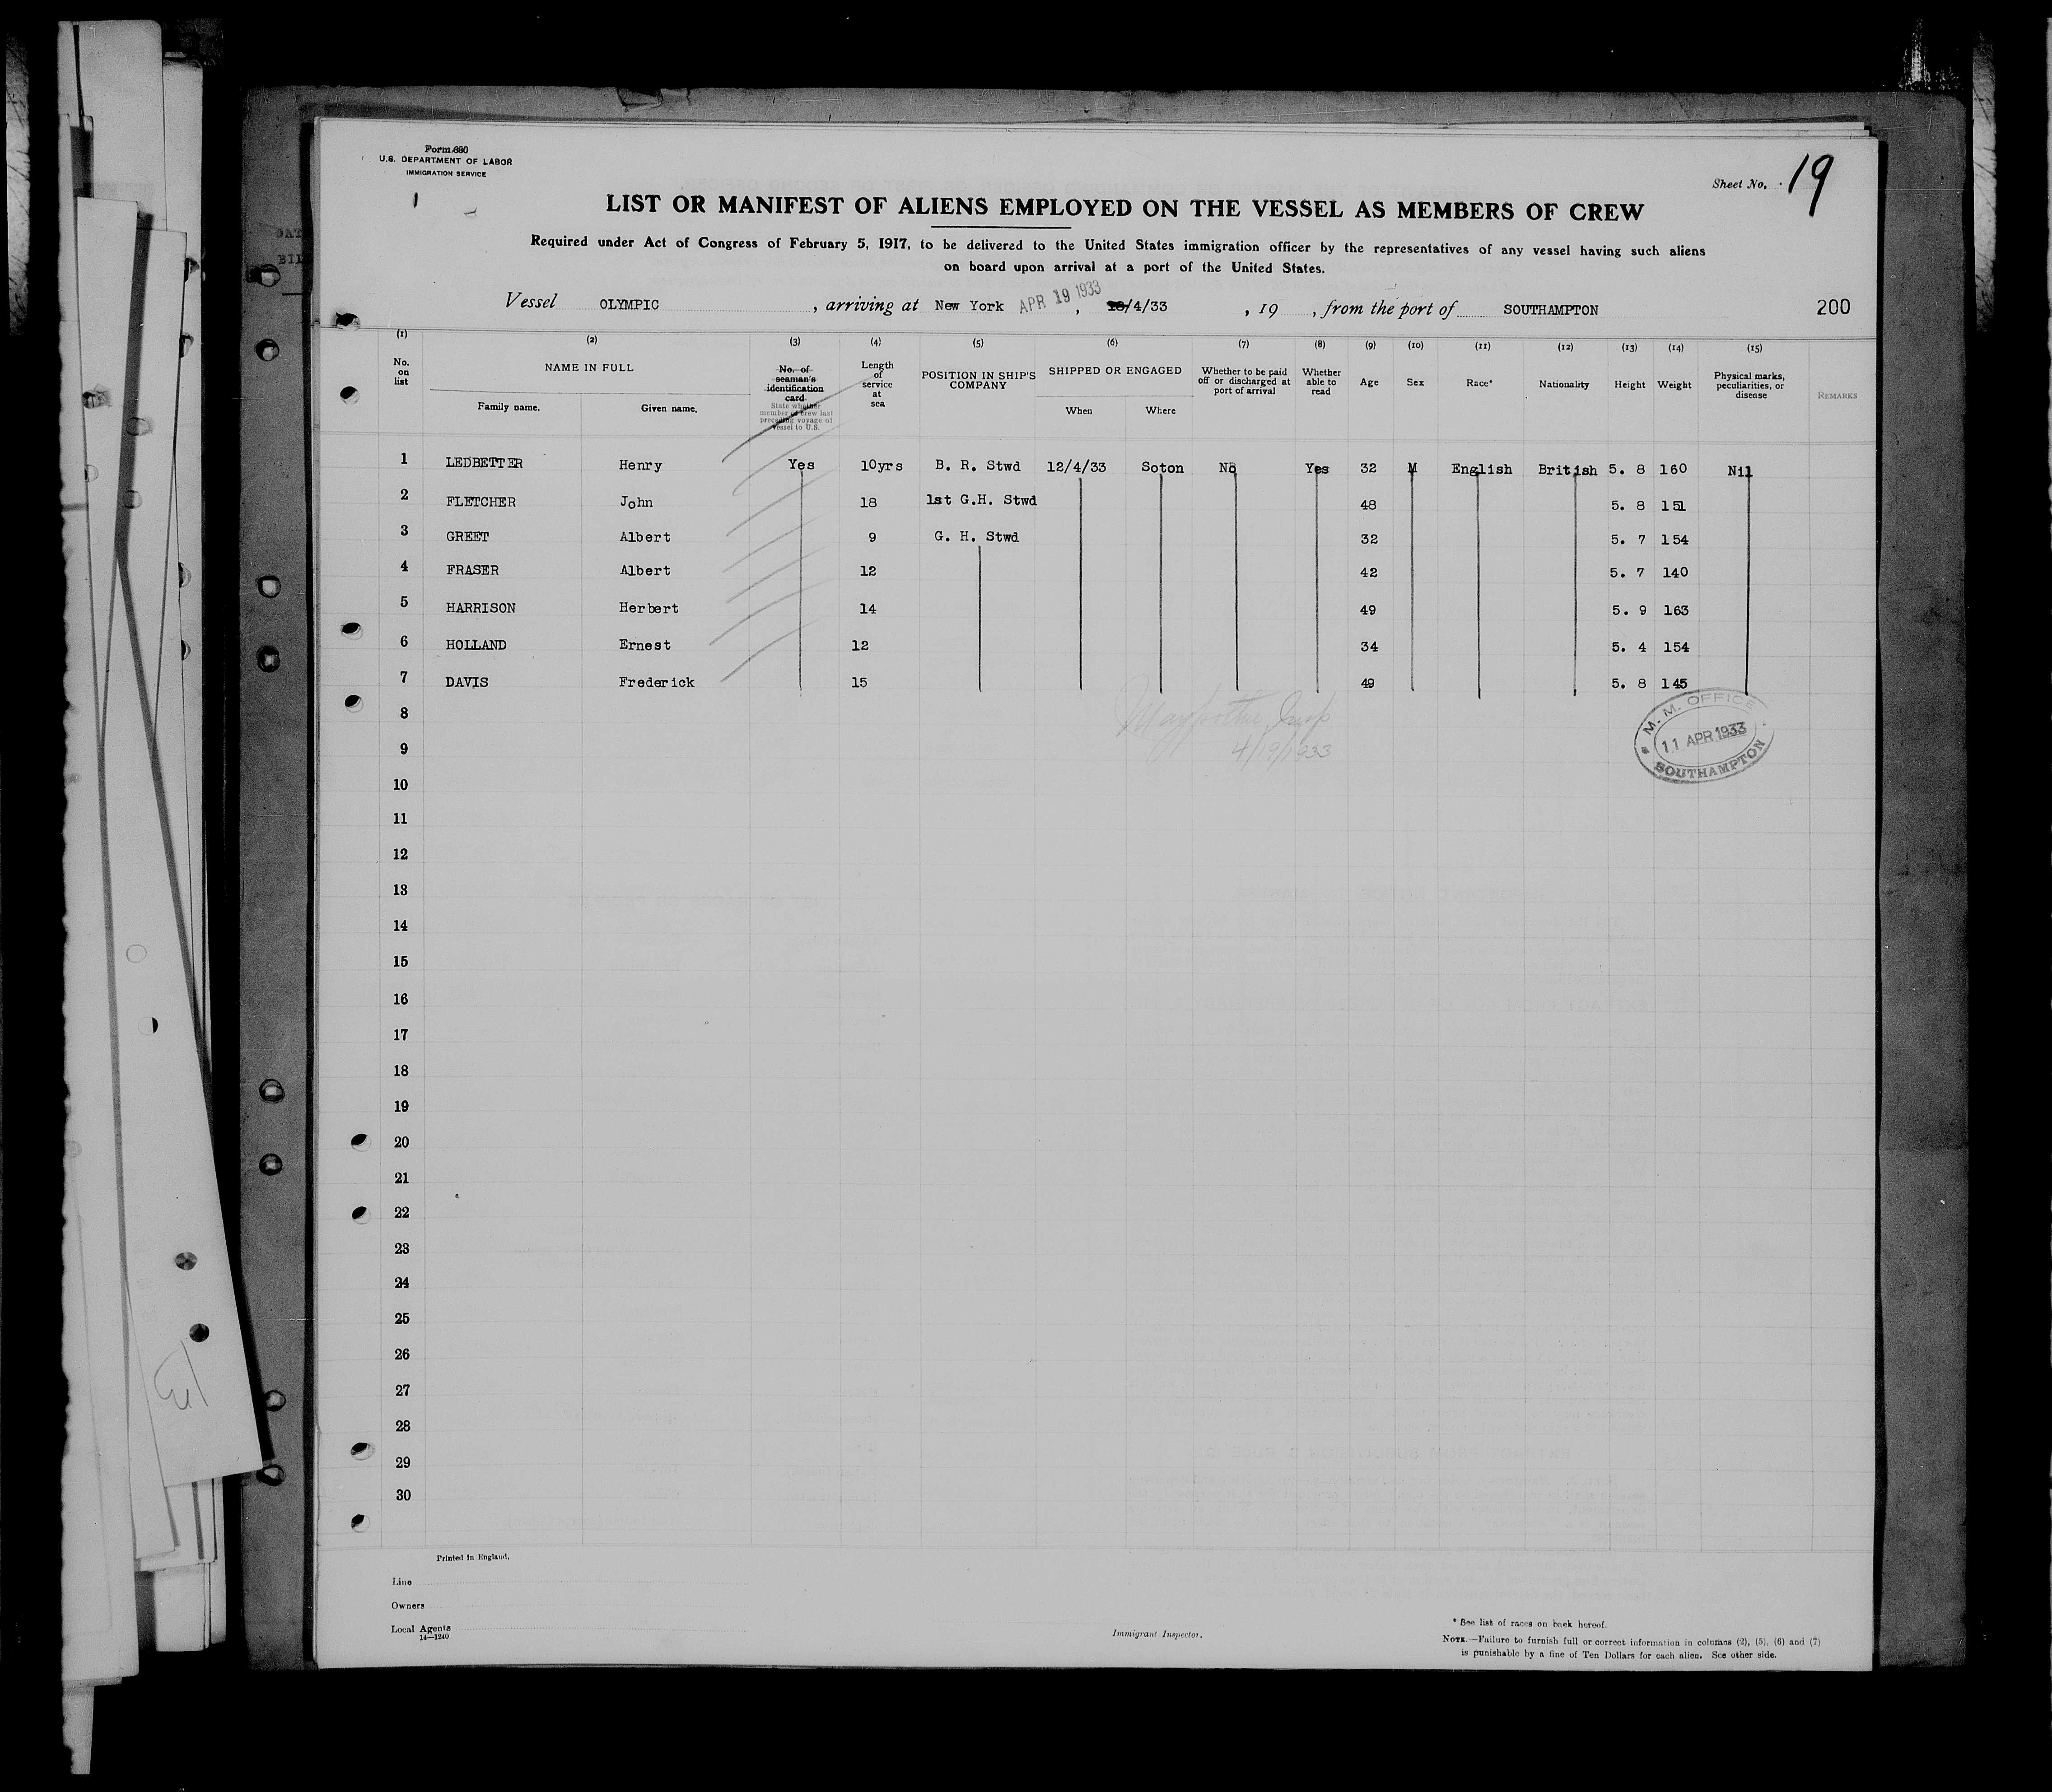 Form 680
U.S. DEPARTMENT OF LABOR
IMMIGRATION SERVICE
Sheet No. 19
LIST OR MANIFEST OF ALIENS EMPLOYED ON THE VESSEL AS MEMBERS OF CREW
Required under Act of Congress of February 5, 1917, to be delivered to the United States immigration officer by the representatives of any vessel having such aliens
on board upon arrival at a port of the United States.
Vessel OLYMPIC, arriving at New York APR 19 1933, /4/33, 19 , from the port of SOUTHAMPTON 200
(1) (2) (3) (4) (5) (6) (7) (8) (9) (10) (11) (12) (13) (14) (15)
No. on list NAME IN FULL Family name. Given name. No. of seaman's identification card State whether member of crew last preceding voyage of vessel to U.S. Length of service at sea POSITION IN SHIP'S COMPANY SHIPPED OR ENGAGED When Where Whether to be paid off or discharged at port of arrival Whether able to read Age Sex Race* Nationality Height Weight Physical marks, peculiarities, or disease REMARKS
1 LEDBETTER Henry Yes 10yrs B. R. Stwd 12/4/33 Soton No Yes 32 M English British 5. 8 160 Nil
2 FLETCHER John 18 1st G.H. Stwd 48 5. 8 151
3 GREET Albert 9 G. H. Stwd 32 5. 7 154
4 FRASER Albert 12 42 5. 7 140
5 HARRISON Herbert 14 49 5. 9 163
6 HOLLAND Ernest 12 34 5. 4 154
7 DAVIS Frederick 15 49 5. 8 145
8
9
4/19/1933
M. M. OFFICE
11 APR 1933
SOUTHAMPTON
10
11
12
13
14
15
16
17
18
19
20
21
22
23
24
25
26
27
28
29
30
Printed in England.
Line
Owners
Local Agents
14—1240
Immigrant Inspector.
* See list of races on back hereof.
NOTE.—Failure to furnish full or correct information in columns (2), (5), (6) and (7)
is punishable by a fine of Ten Dollars for each alien. See other side.
13